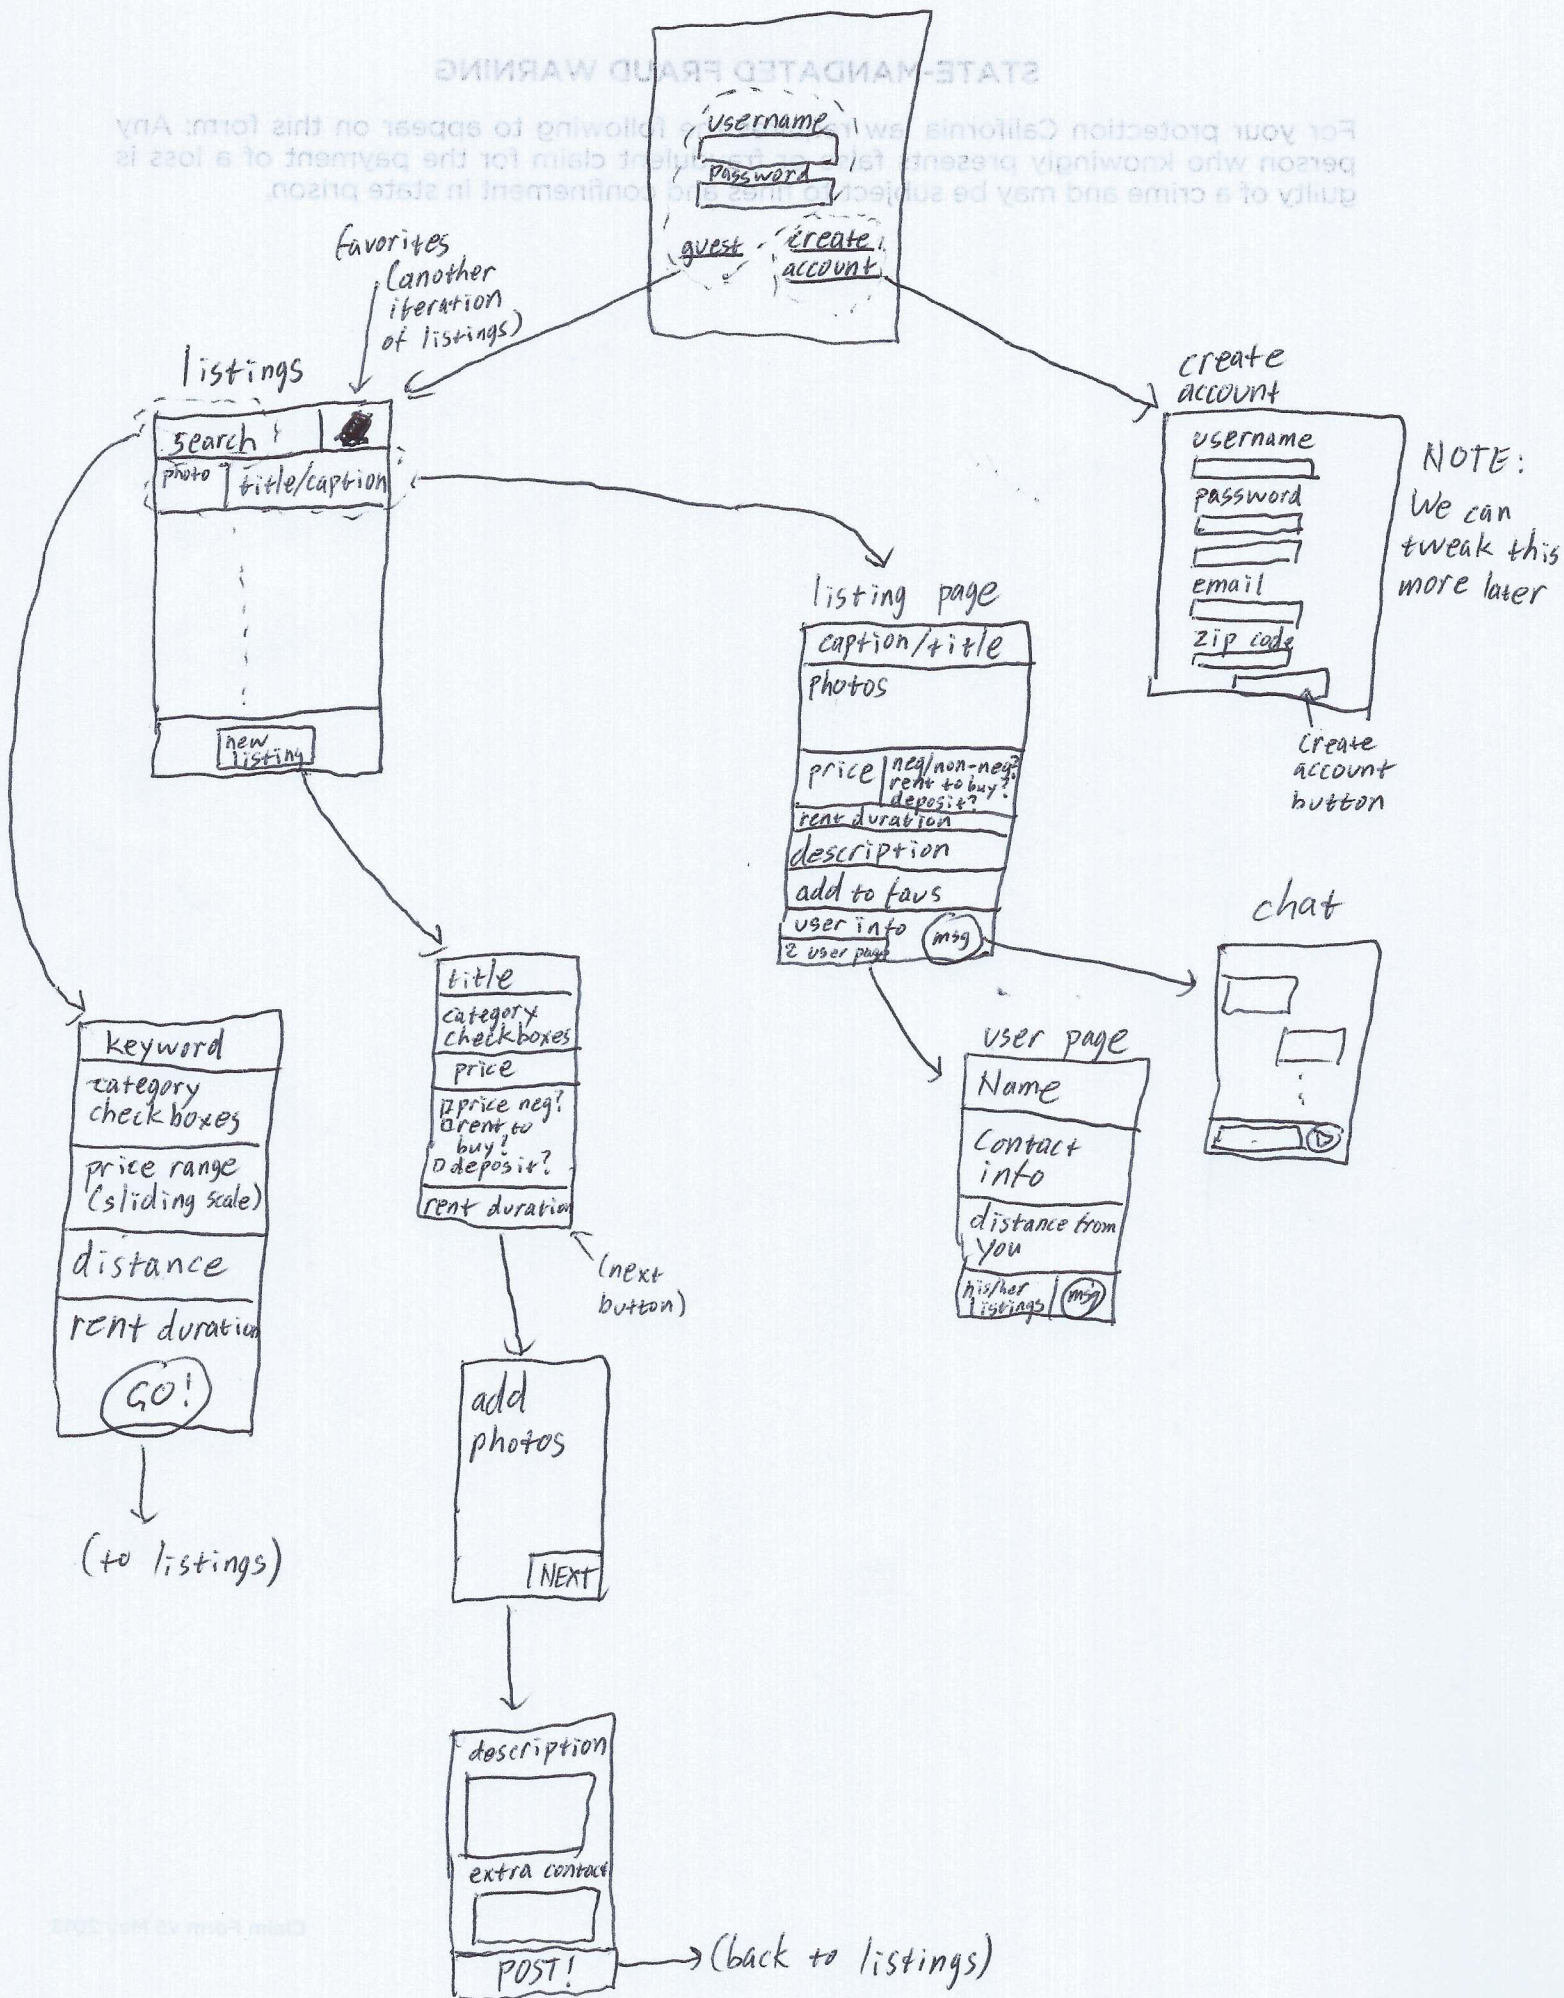 STATE-MANDATED FRAUD WARNING
For your protection California law requires the following to appear on this form: Any
person who knowingly presents false or fraudulent claim for the payment of a loss is
guilty of a crime and may be subject to fines and confinement in state prison.
username
password
guest
create
account
favorites
(another
iteration
of listings)
listings
search
photo
title/caption
new
listing
create
account
username
password
email
zip code
NOTE:
We can
tweak this
more later
create
account
button
listing page
caption/title
photos
price
neg/non-neg?
rent to buy?
deposit?
rent duration
description
add to favs
user info
2 user page
msg
chat
user page
Name
Contact
info
distance from
you
his/her
listings
msg
keyword
category
checkboxes
price range
(sliding scale)
distance
rent duration
GO!
(to listings)
title
category
checkboxes
price
price neg?
rent to
buy?
deposit?
rent duration
(next
button)
add
photos
NEXT
description
extra contact
POST!
(back to listings)
Claim Form v5 May 2013